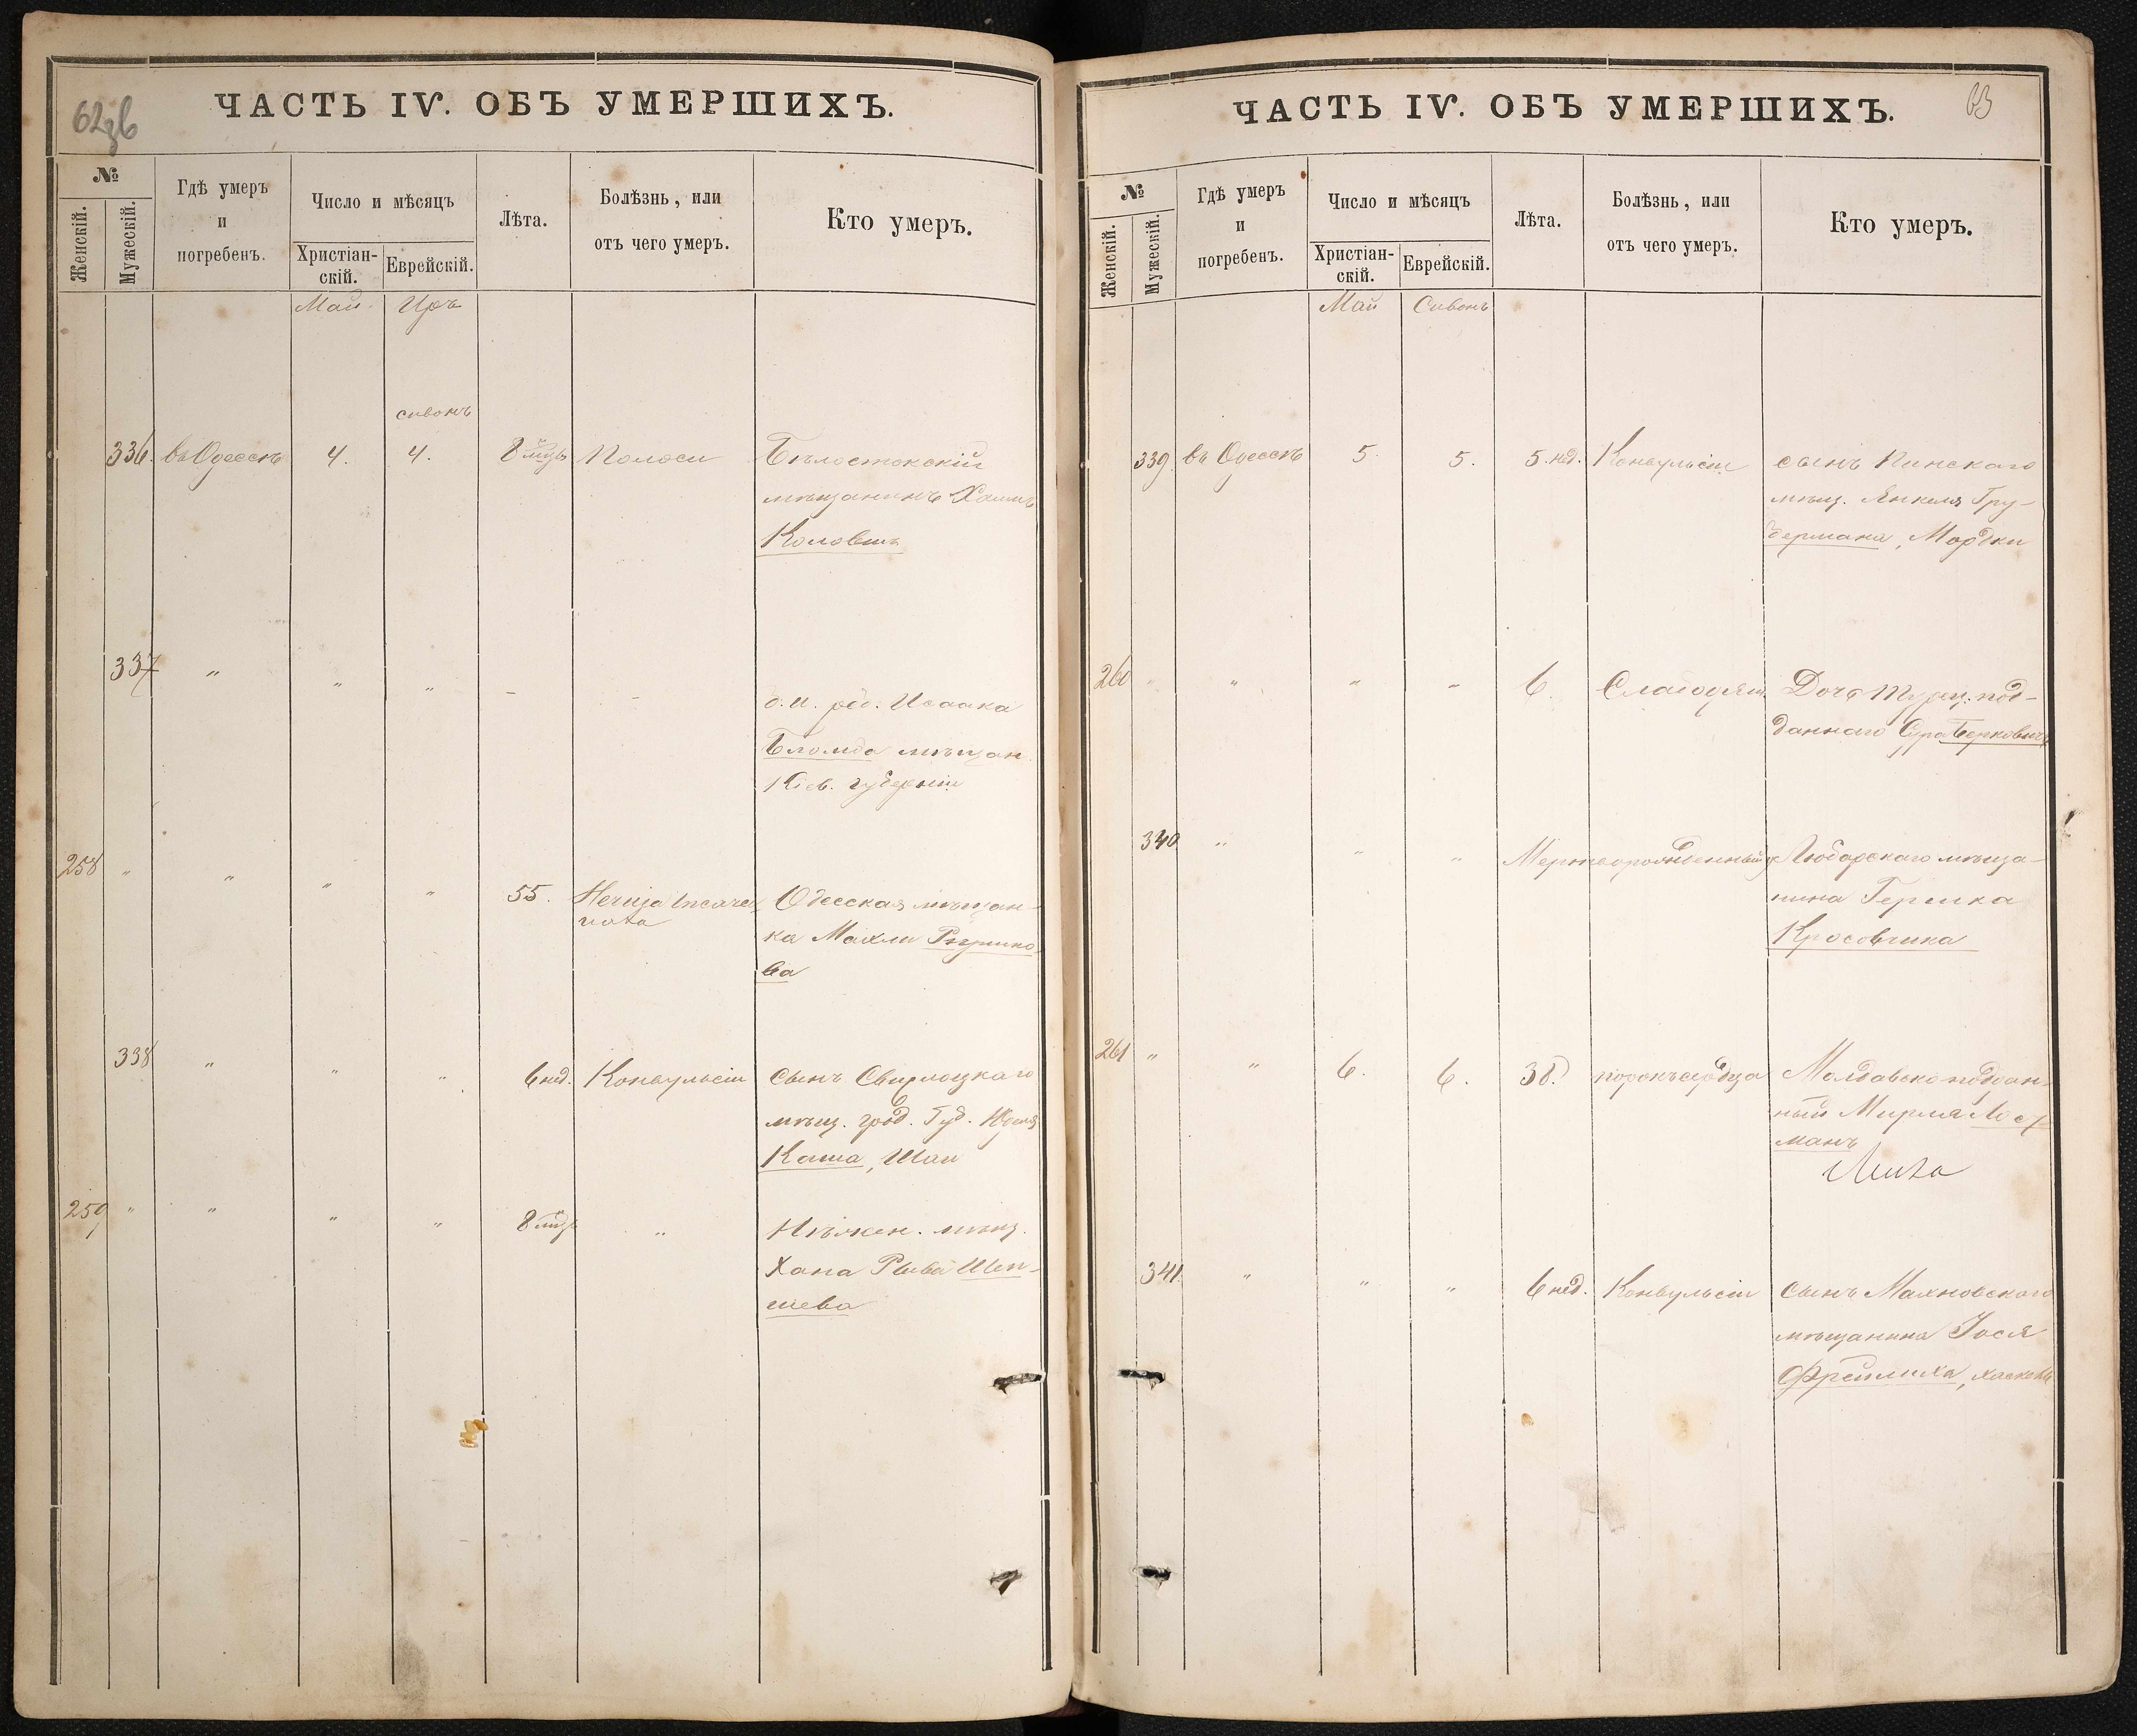 62зв
ЧАСТЬ IV. ОБЪ УМЕРШИХЪ.
№
Женскій.
Мужескій.
Гдѣ умеръ
и
погребенъ.
Число и мѣсяцъ
Христіан-
скій.
Еврейскій.
Лѣта.
Болѣзнь, или
отъ чего умеръ.
Кто умеръ.
Май Иръ
сивонъ
336. въ Одессѣ 4. 4. 8 мцъ Колоси Бѣлостокскій
мѣщанинъ Хаимъ
337 " " " - -
Исаака
мѣщан.
Кіев. губерніи
258 " " " " 55. Hernia incarce- Одесская мѣщан-
rata
ка Махли
ва
338 " " " 6 нед. Конвульсіи сынъ Свислоцкаго
мѣщ. грод. Губ.
Каша, Шаи
259 " " " " 8 мцъ " Нѣжен. мѣщ.
Хана Рыва Шеп-
шева
63
ЧАСТЬ IV. ОБЪ УМЕРШИХЪ.
№
Женскій.
Мужескій.
Гдѣ умеръ
и
погребенъ.
Число и мѣсяцъ
Христіан-
скій.
Еврейскій.
Лѣта.
Болѣзнь, или
отъ чего умеръ.
Кто умеръ.
Май Сивонъ
339. въ Одессѣ 5. 5. 5. нед. Конвульсіи сынъ Пинскаго
мѣщ. Янкеля Гру-
бермана, Мордки
260 " " " " 6. Дочь Турец. под-
даннаго Сура Берковичъ
340 " " " Мертворожденный Любарскаго мѣща-
нина Гершка
Красовчика
261 " " 6. 6. 38. порокъ сердца Молдавско подан-
ный
манъ
341. " " " 6 нед. Конвульсіи сынъ Махновскаго
мѣщанина Іося
Фрейлиха,